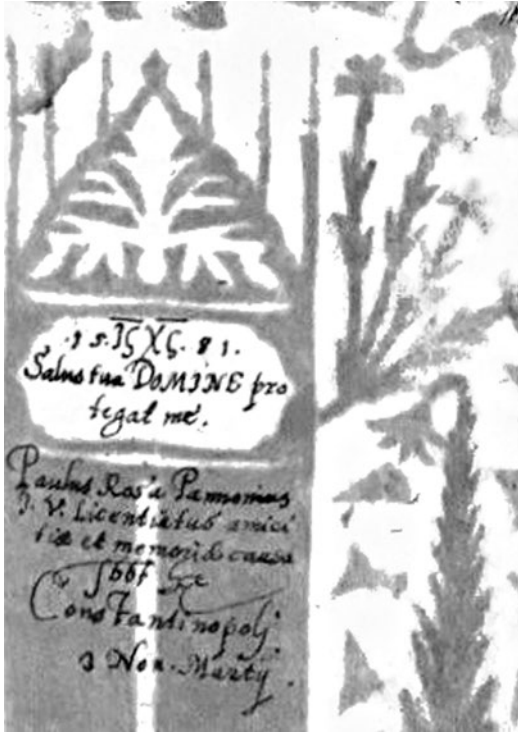 15. ΙΣ ΧΣ. 81.
Salus tua DOMINE pro
tegat me.
Paulus Rosa Pannonius
J. V. Licentiatus amici
tiæ et memoriæ causa
Constantinopolj.
3 Non. Martÿ.